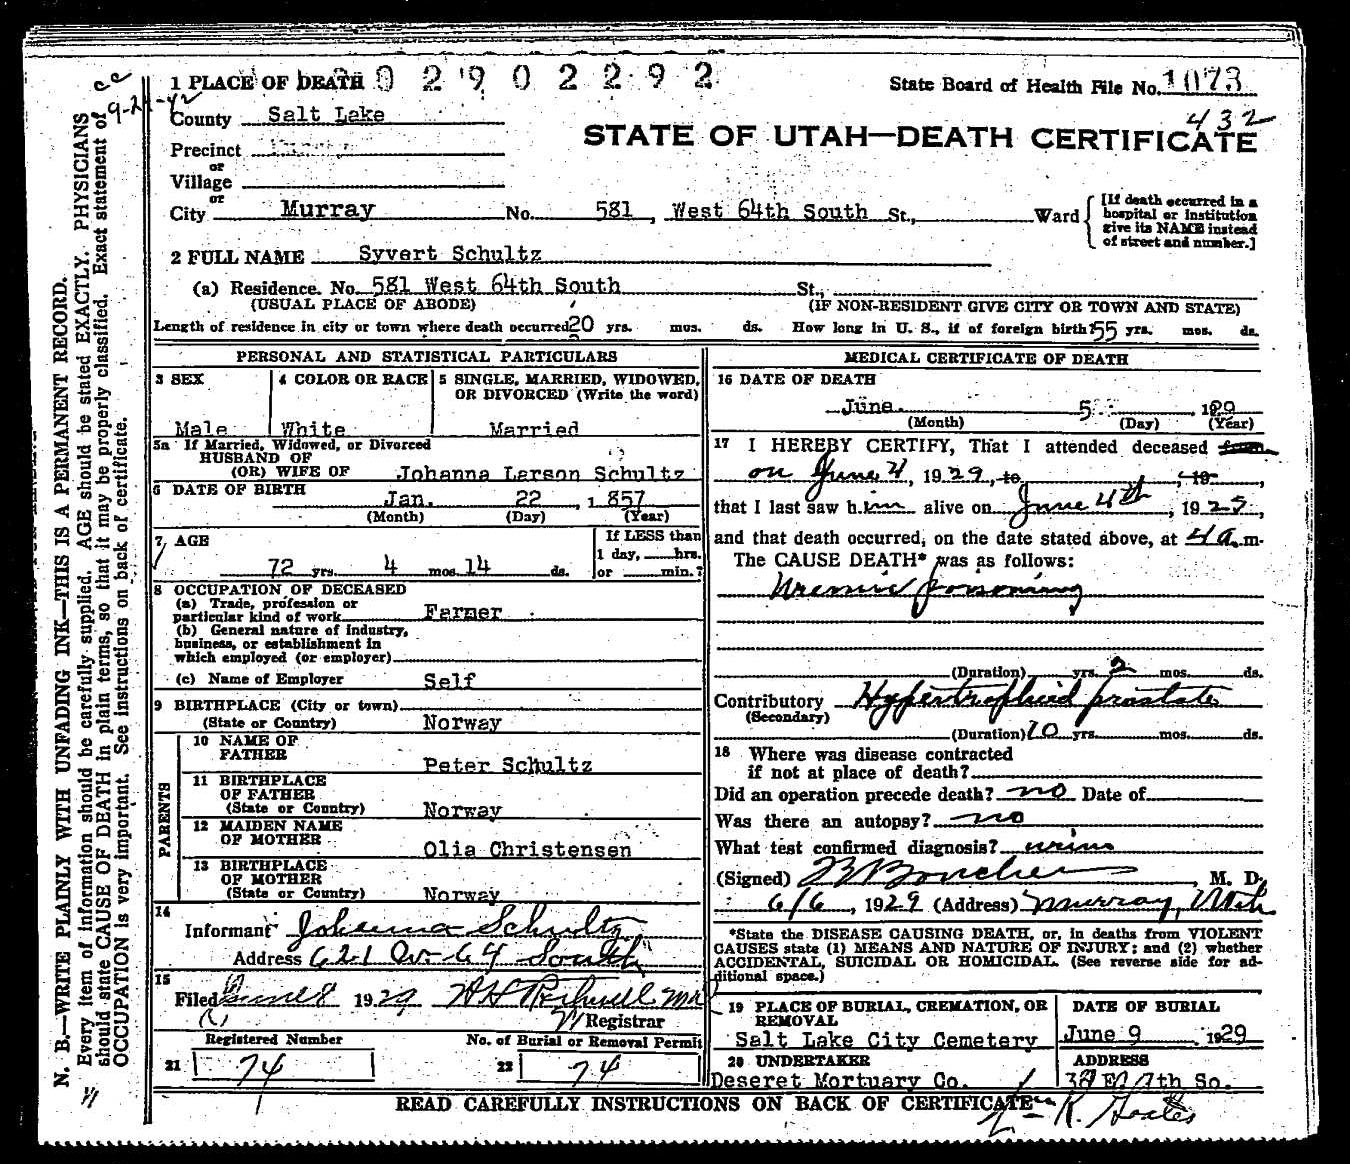 1 PLACE OF DEATH 0 2 9 0 2 2 9 2
State Board of Health File No. 1073
432
9-2 -42
County Salt Lake
STATE OF UTAH—DEATH CERTIFICATE
Precinct
or
Village
or
City Murray No. 581, West 64th South St., Ward
[If death occurred in a
hospital or institution
give its NAME instead
of street and number.]
2 FULL NAME Syvert Schultz
(a) Residence. No. 581 West 64th South St.,
(USUAL PLACE OF ABODE) (IF NON-RESIDENT GIVE CITY OR TOWN AND STATE)
Length of residence in city or town where death occurred 20 yrs. mos. ds. How long in U. S., if of foreign birth? 55 yrs. mos. ds.
PERSONAL AND STATISTICAL PARTICULARS
3 SEX
Male
4 COLOR OR RACE
White
5 SINGLE, MARRIED, WIDOWED,
OR DIVORCED (Write the word)
Married
5a If Married, Widowed, or Divorced
HUSBAND OF
(OR) WIFE OF Johanna Larson Schultz
6 DATE OF BIRTH
Jan. 22, 1857
(Month) (Day) (Year)
7 AGE
72 yrs. 4 mos. 14 ds.
If LESS than
1 day, hrs.
or min.?
8 OCCUPATION OF DECEASED
(a) Trade, profession or
particular kind of work Farmer
(b) General nature of industry,
business, or establishment in
which employed (or employer)
(c) Name of Employer Self
9 BIRTHPLACE (City or town)
(State or Country) Norway
PARENTS
10 NAME OF
FATHER Peter Schultz
11 BIRTHPLACE
OF FATHER
(State or Country) Norway
12 MAIDEN NAME
OF MOTHER Olia Christensen
13 BIRTHPLACE
OF MOTHER
(State or Country) Norway
14
Informant Johanna Schultz
Address 621 W 64 South
15
Filed June 8 1929 Registrar
Registered Number
21 74
No. of Burial or Removal Permit
22 74
MEDICAL CERTIFICATE OF DEATH
16 DATE OF DEATH
June 5, 1929
(Month) (Day) (Year)
17 I HEREBY CERTIFY, That I attended deceased from
on June 4, 1929, to , 19 ,
that I last saw him alive on June 4th, 1929,
and that death occurred, on the date stated above, at 4 a.m.
The CAUSE DEATH* was as follows:
Uremic poisoning
(Duration) yrs. 2 mos. ds.
Contributory Hypertrophied prostate
(Secondary)
(Duration) 10 yrs. mos. ds.
18 Where was disease contracted
if not at place of death?
Did an operation precede death? no Date of
Was there an autopsy? no
What test confirmed diagnosis? urine
(Signed) M. D.
6/6, 1929 (Address) Murray, Utah
*State the DISEASE CAUSING DEATH, or, in deaths from VIOLENT
CAUSES state (1) MEANS AND NATURE OF INJURY; and (2) whether
ACCIDENTAL, SUICIDAL OR HOMICIDAL. (See reverse side for ad-
ditional space.)
19 PLACE OF BURIAL, CREMATION, OR
REMOVAL
Salt Lake City Cemetery
DATE OF BURIAL
June 9 1929
20 UNDERTAKER
Deseret Mortuary Co.
ADDRESS
7th So.
READ CAREFULLY INSTRUCTIONS ON BACK OF CERTIFICATE
N. B.—WRITE PLAINLY WITH UNFADING INK—THIS IS A PERMANENT RECORD.
Every item of information should be carefully supplied. AGE should be stated EXACTLY. PHYSICIANS
should state CAUSE OF DEATH in plain terms, so that it may be properly classified. Exact statement of
OCCUPATION is very important. See instructions on back of certificate.